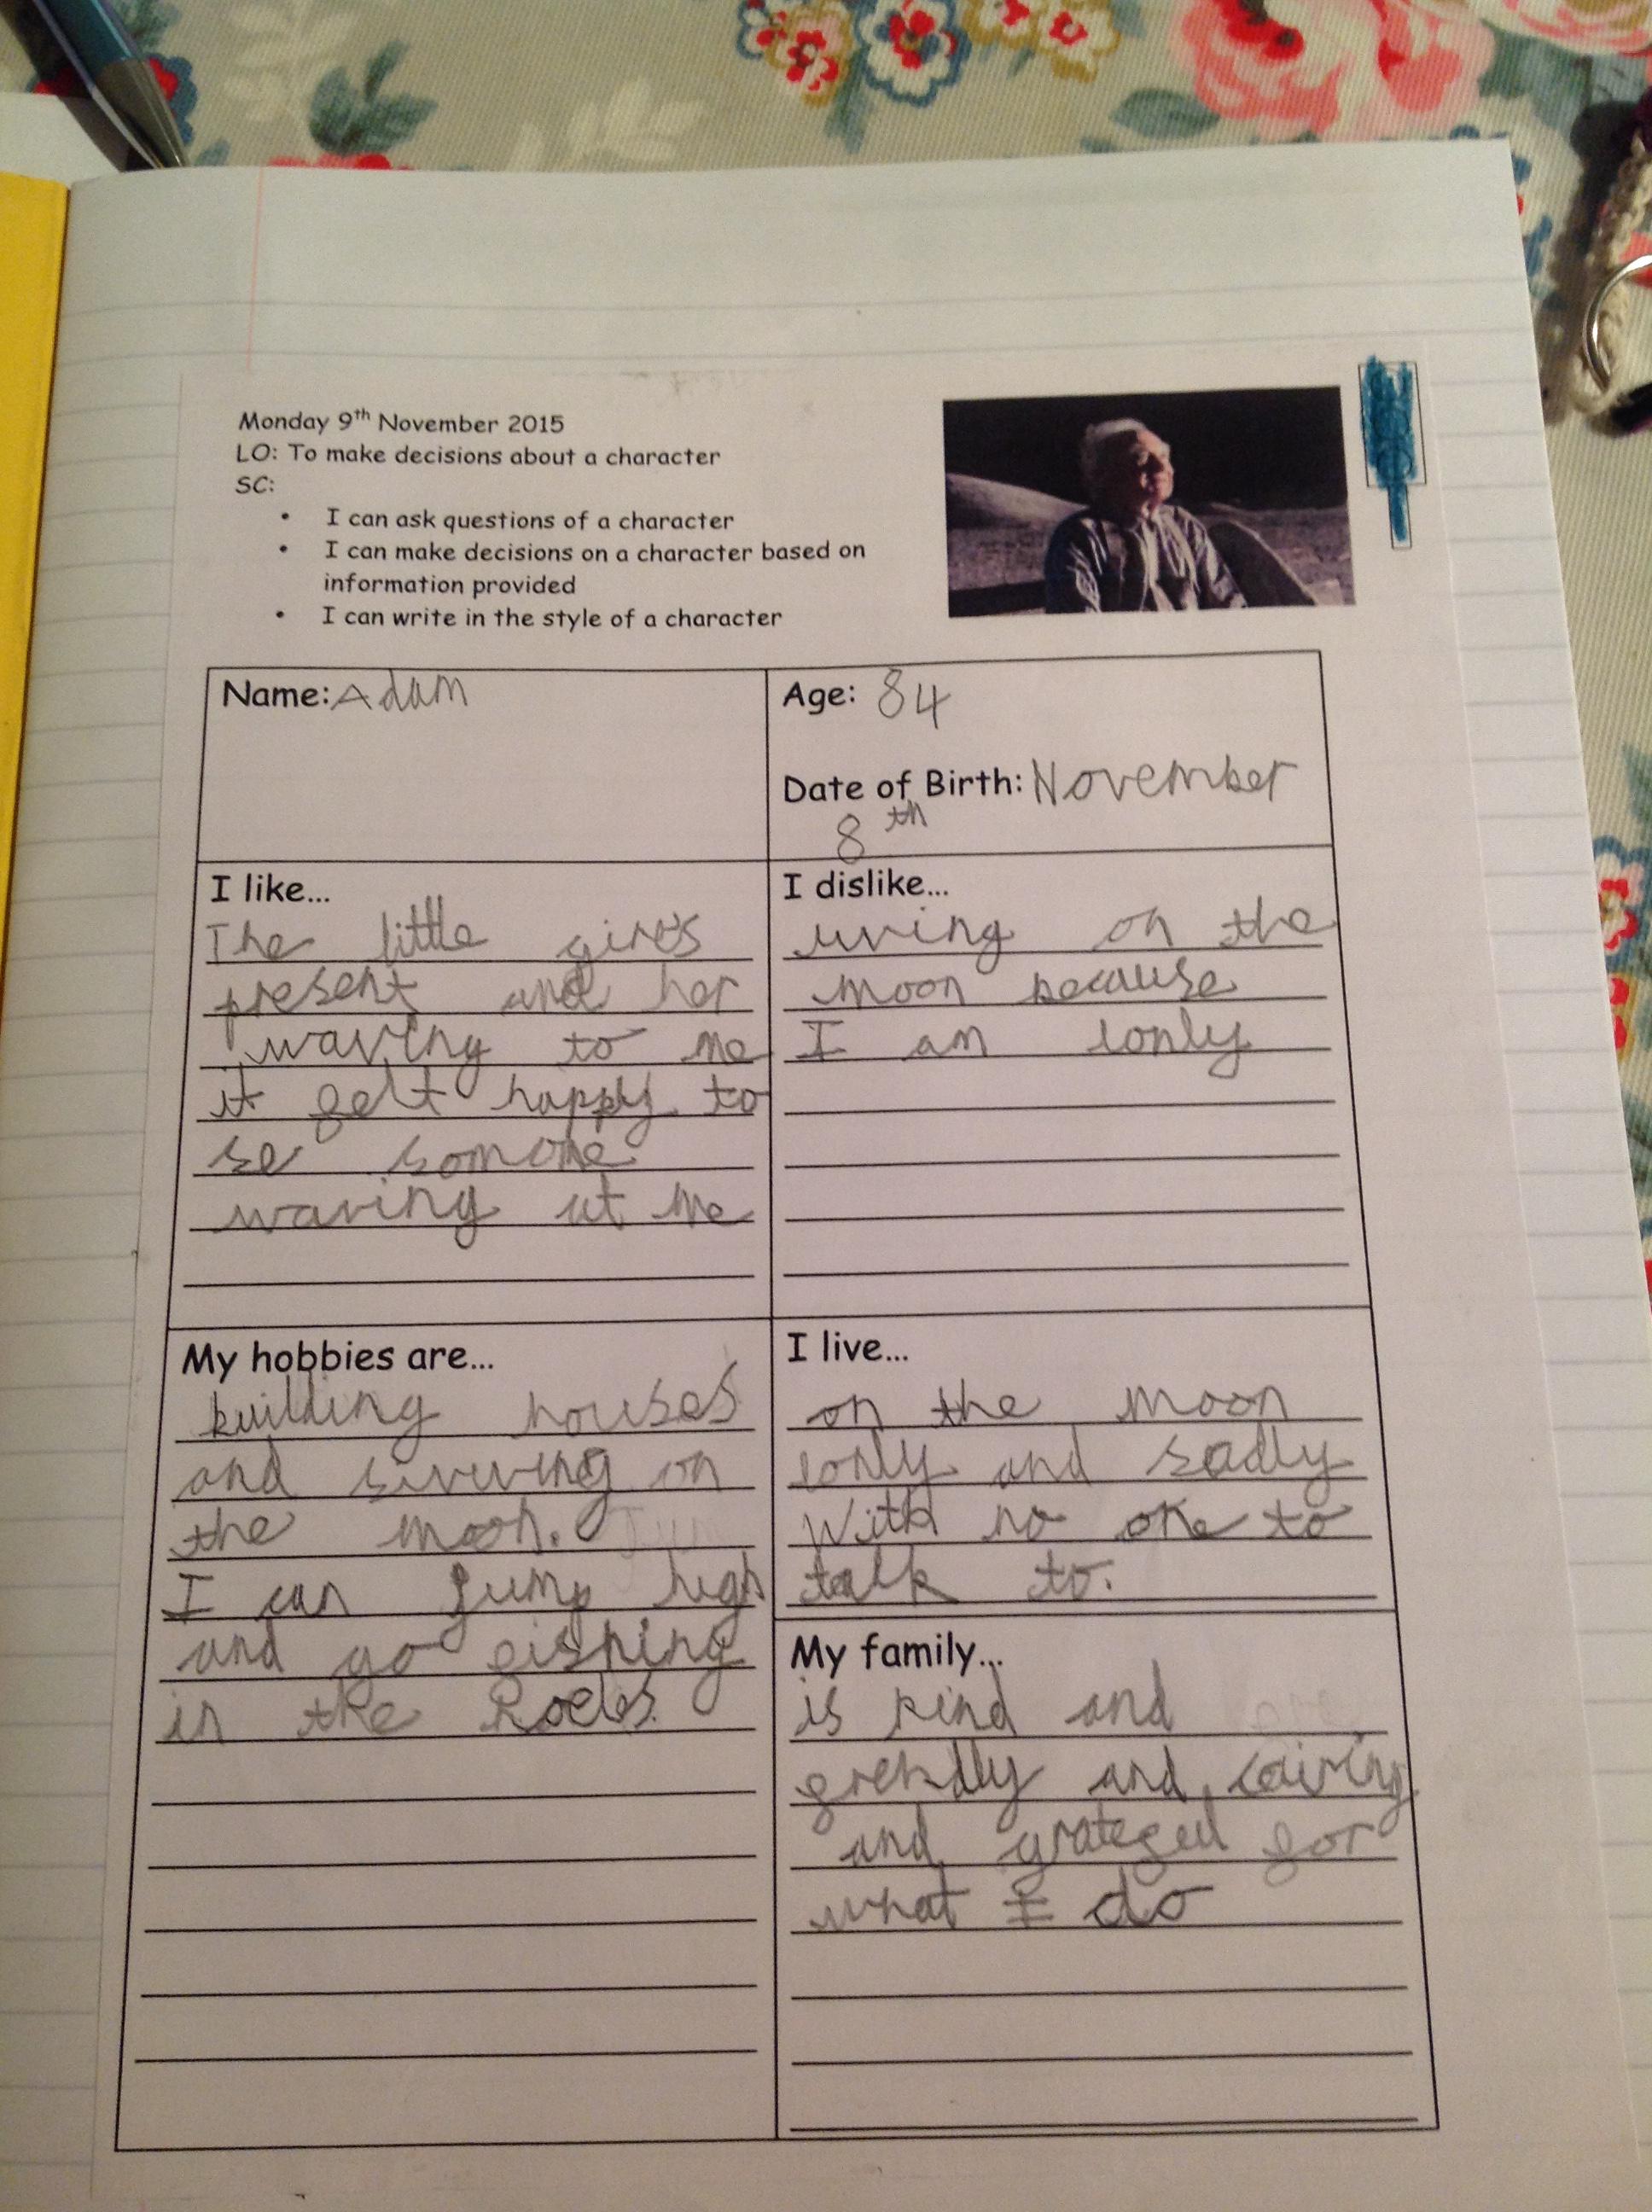 Monday 9th November 2015
LO: To make decisions about a character
SC:
• I can ask questions of a character
• I can make decisions on a character based on
information provided
• I can write in the style of a character
Name: Adam
Age: 84
Date of Birth: November
8th
I like...
The little girls
present and her
waving to me
it felt happy to
se somone
waving at me
I dislike...
living on the
moon because
I am lonly
My hobbies are...
building houses
and on
the moon.
I can jump high
and go fishing
in the
I live...
on the moon
lonly and sadly
With no one to
talk to.
My family...
is kind and
frendly and cairing
and grateful for
what I do